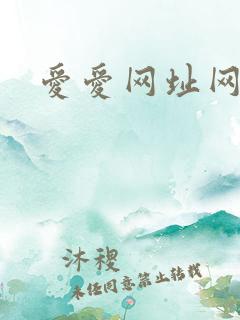 爱爱网址网
沐稷
未经同意禁止转载